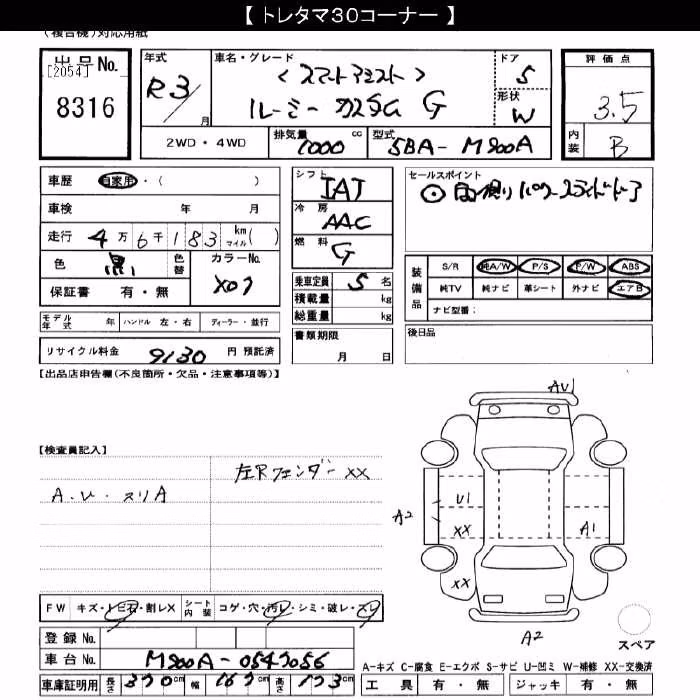 【 トレタマ30コーナー 】
(複合機)対応用紙
出品No.
[2054]
8316
年式
R3/
月
車名・グレード
<スマートアシスト>
ルーミー カスタム G
ドア
5
形状
W
評価点
3.5
内装
B
2WD・4WD
排気量 1000 cc
型式 5BA- M900A
車歴 自家用・( )
車検 年 月
走行 4万6千183 km マイル( )
色 黒
色替
カラーNo. X07
保証書 有・無
シフト
IAT
冷房
AAC
燃料
G
乗車定員 5 名
積載量 kg
総重量 kg
セールスポイント
装備品
S/R 純A/W P/S P/W ABS
純TV 純ナビ 革シート 外ナビ エアB
ナビ型番:
モデル年式 年 ハンドル 左・右 ディーラー・並行
リサイクル料金 9130 円 預託済
書類期限
月 日
後日品
【出品店申告欄(不良箇所・欠品・注意事項等)】
【検査員記入】
左Rフェンダー XX
A・U・スリA
AU1
A2
U1
XX
A1
XX
A2
スペア
FW キズ・トビ石・割レX シート内装 コゲ・穴・汚レ・シミ・破レ・スレ
登録No.
車台No. M900A-0543056
車庫証明用 長さ 370cm 幅 167cm 高さ 173cm
A-キズ C-腐食 E-エクボ S-サビ U-凹ミ W-補修 XX-交換済
工具 有・無 ジャッキ 有・無